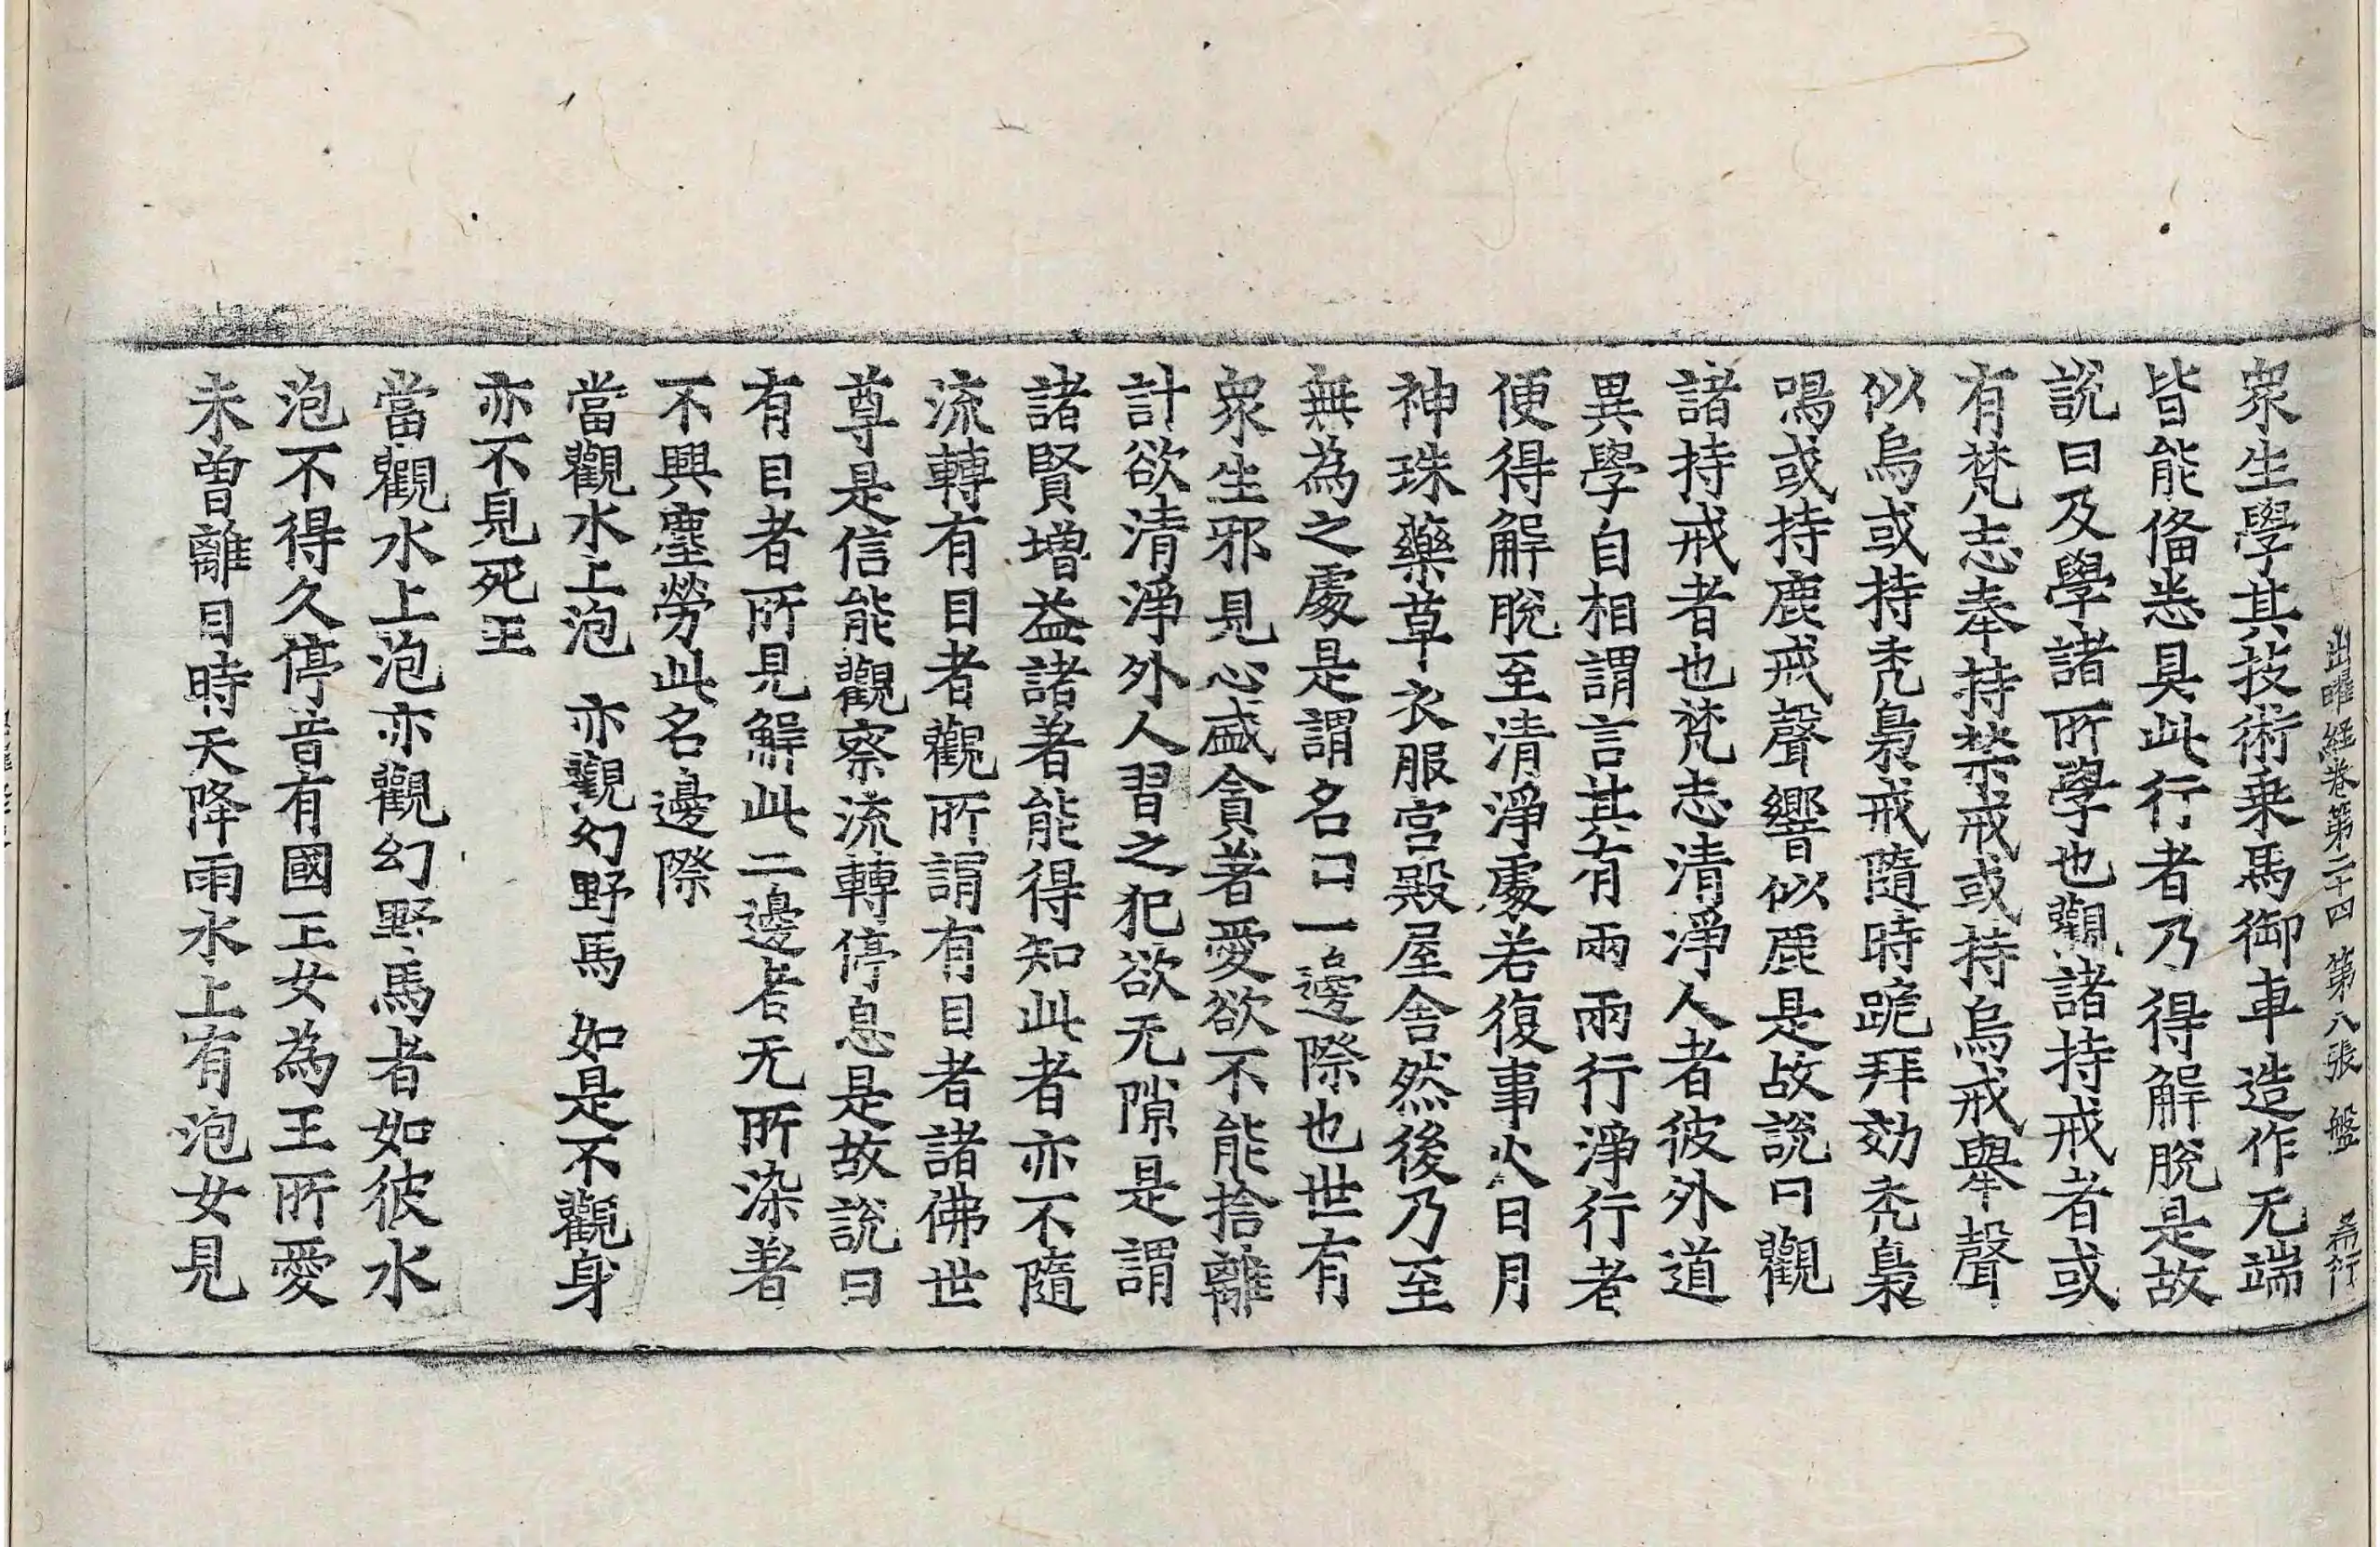 出曜経卷第二十四 第八張 盤 希行
衆生學其技術乗馬御車造作无端
皆能俻悉具此行者乃得解脫是故
說曰及學諸所學也觀諸持戒者或
有梵志奉持禁戒或持烏戒舉聲
似烏或持禿梟戒隨時跪拜効禿梟
鳴或持鹿戒聲響似鹿是故說曰觀
諸持戒者也梵志清淨人者彼外道
異學自相謂言其有兩兩行淨行者
便得解脫至清淨處若復事火日月
神珠藥草衣服宫殿屋舍然後乃至
無為之處是謂名曰一邊際也世有
衆生邪見心盛貪著愛欲不能捨離
計欲清淨外人習之犯欲无隙是謂
諸賢增益諸著能得知此者亦不隨
流轉有目者觀所謂有目者諸佛世
尊是信能觀察流轉停息是故說曰
有目者所見解此二邊者无所染著
不興塵勞此名邊際
當觀水上泡 亦觀幻野馬 如是不觀身
亦不見死王
當觀水上泡亦觀幻野馬者如彼水
泡不得久停昔有國王女為王所愛
未曽離目時天降雨水上有泡女見